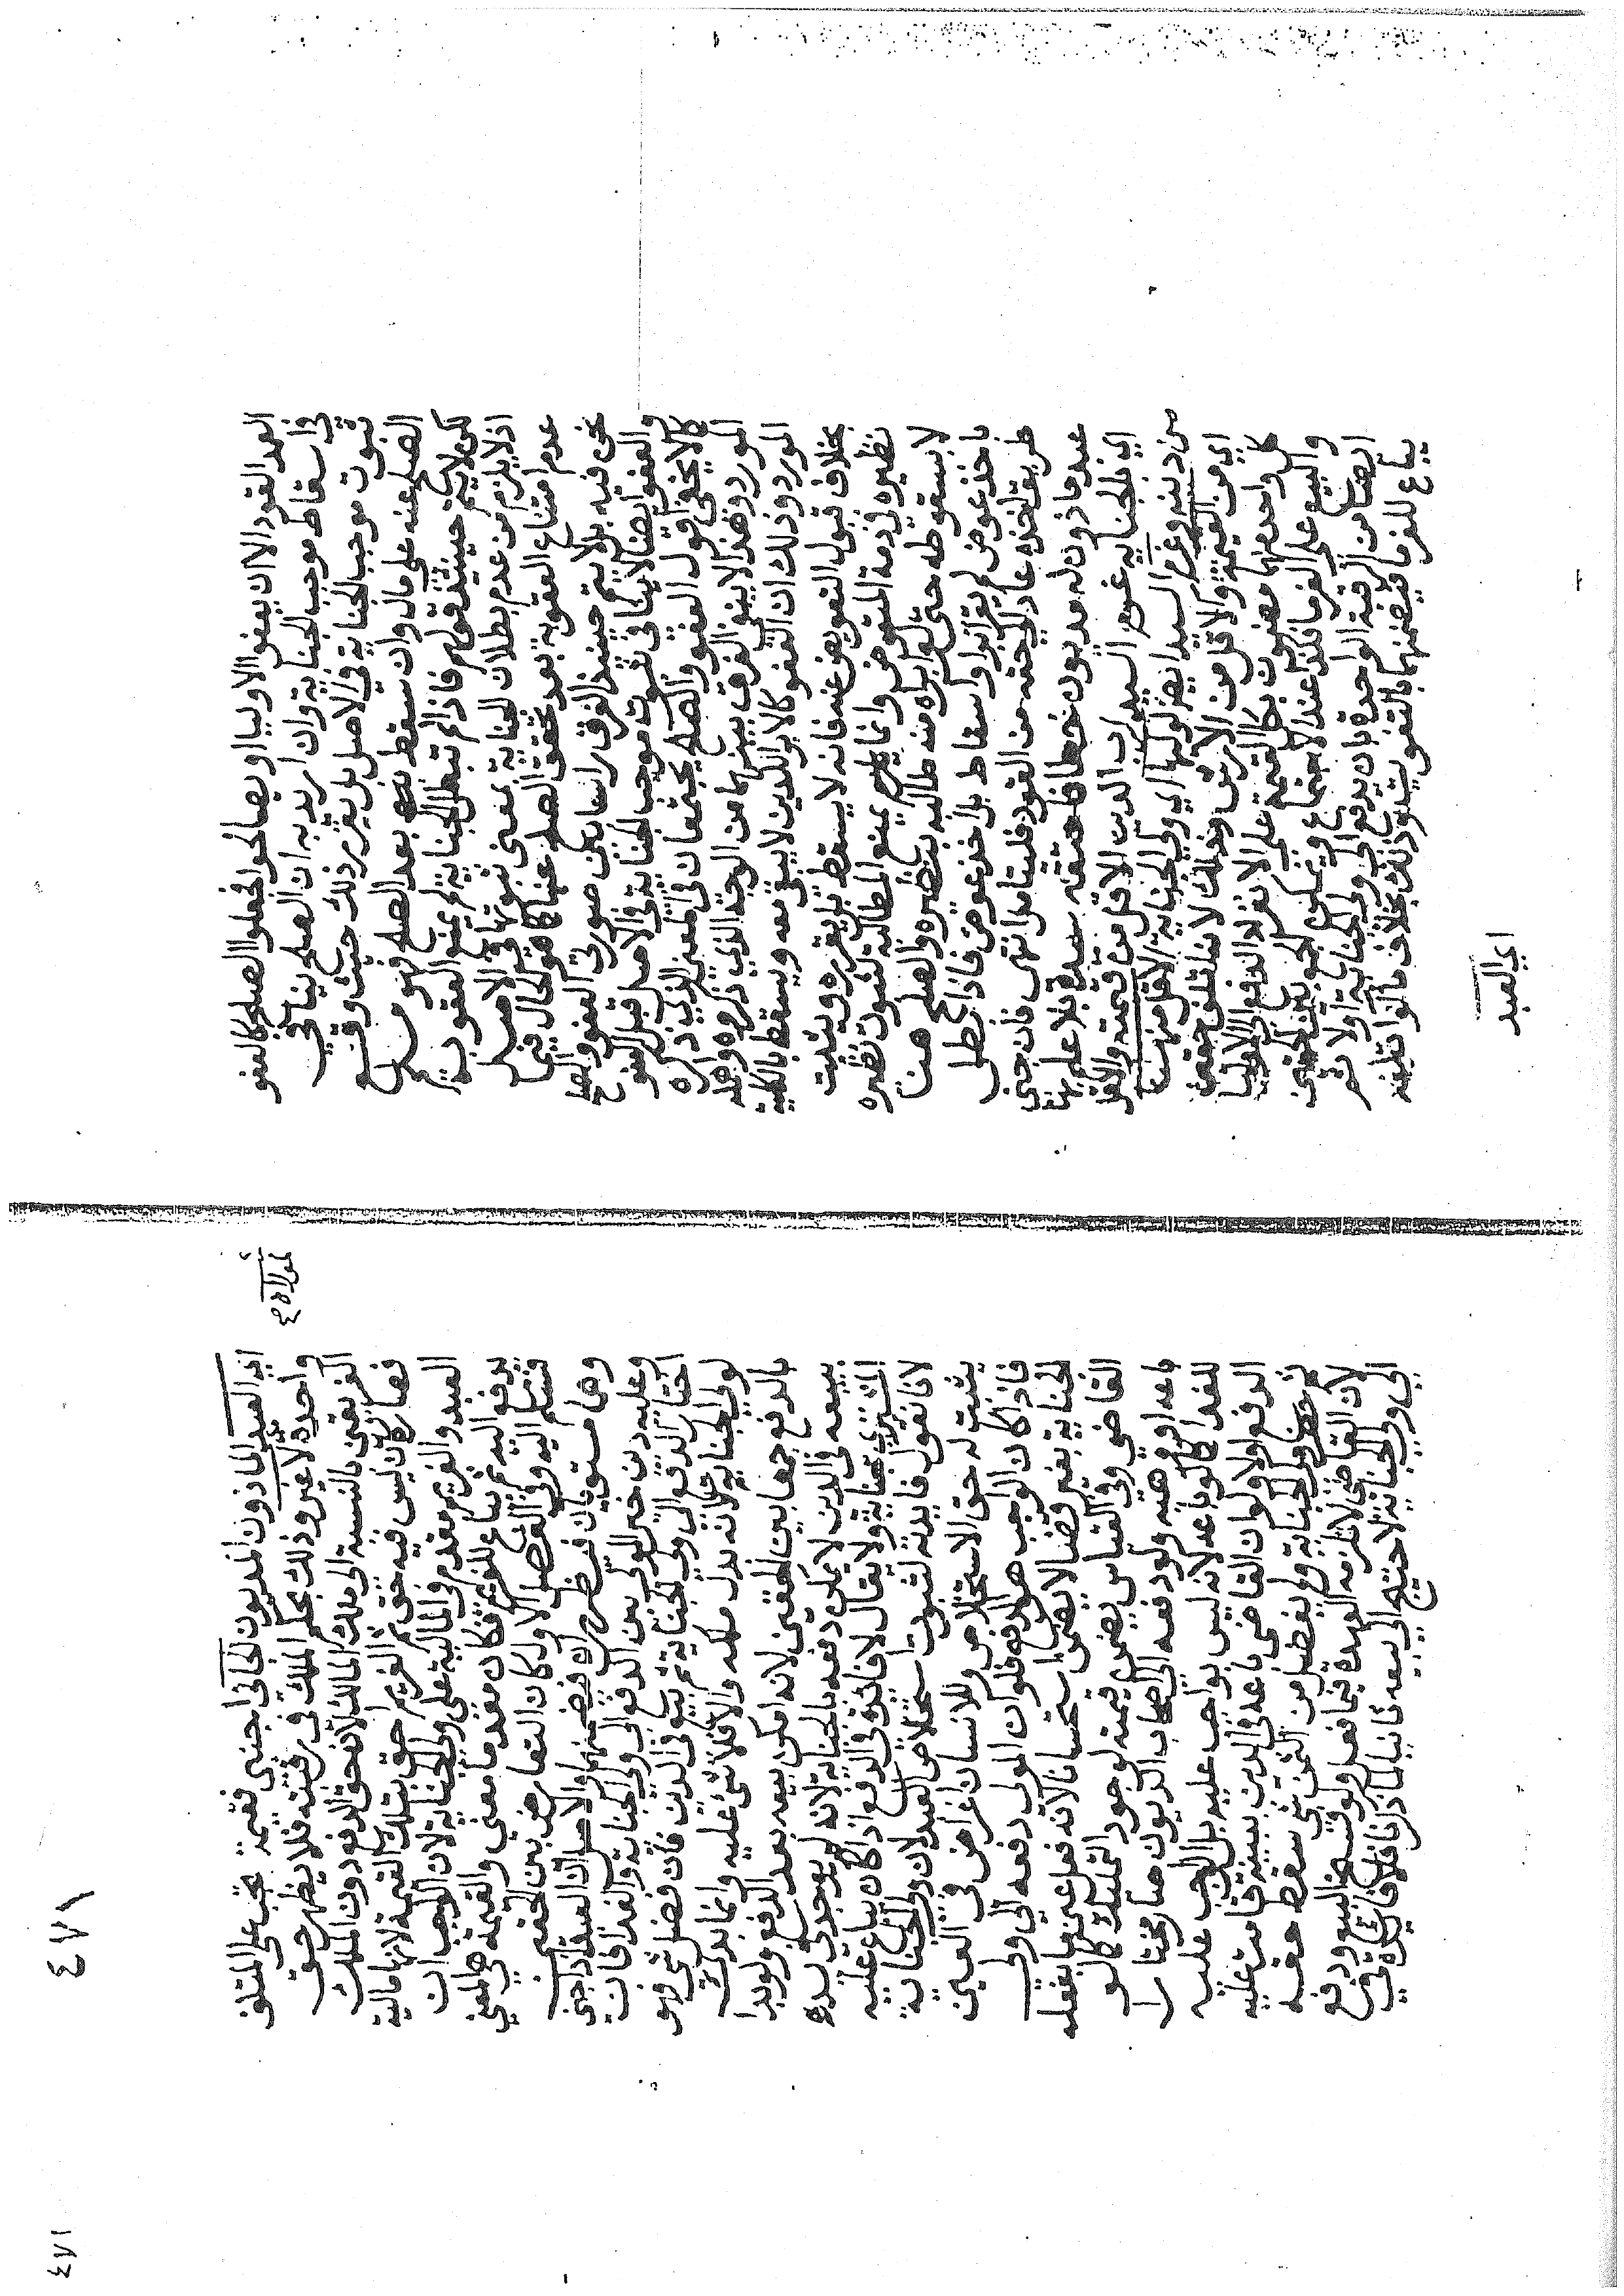 العمد القود الا ان يعفوا الاوليا او يصالحوا فجعلوا الصلح كالعفو
في اسقاط موجب الجناية وان اريد به ان الصلح ينافي
ثبوت موجب الجناية في الاصل بل يقرر ذلك حيث وقع
الصلح عنه على مال وان سقط بعد الصلح فهو مسلم
لكن لا يتم حينئذ قولهم فاذا لم تبطل الجناية لم يمتنع العقوبة
اذ لا يلزم من عدم بطلان الجناية بمعنى ثبوتها في الاصل
عدم امتناع العقوبة بعد تحقق الصلح عنها كما هو الحال فيما
نحن فيه بل لا يتم حينئذ الفرق راسا بين صورتي العفو والصلح
والعفو ايضا لا ينافي ثبوت موجب الجناية في الاصل قبل العفو
كما لا يخفى اقول العفو والصلح يجتمعان في المعنى الذي ذكره
المورد وهذا لا ينفي الفرق بينهما من الوجه الذي ذكروه وجهله
المورد وذلك ان العفو كالابرا للدين لا يبقى معه ويسقط بالكلية
بخلاف قبول التعويض عنه فانه لا يسقط بل يقرره ويثبت
نظيره في ذمة المتعوض وانما يمنع المطالبة لثبوت نظيره
لا سقوطه حتى لو ابراه منه طالبه بنظيره والصلح هنا
باخذ عوض لم يقع ابرا واسقاط بل اخذ عوض فاذا بطل
طريق اخذه عاد الى حقه من القود فليتامل انتهى فان جنى
عبد ماذون له مديون خطا فاعتقه سيده بلا علم بها
اي بالجناية غرم السيد لرب الدين الاقل من قيمته والاقل
من دينه وغرم السيد ايضا لوليها اي ولي الجناية الاقل منها
اي من القيمة والاقل من الارش وذلك لانه اتلف حقين
كل واحد منهما مضمون بكل القيمة على الانفراد الدفع الى الاوليا
والبيع على الغرما فكذا عند الاجتماع ويمكن الجمع بين الحقين
ايضا من الرقبة الواحدة بان يدفع الى ولي الجناية اولا ثم
يباع للغرما فيضمنهما بالتفويت بخلاف ما لو اتلفه
اي العبد
٤٧١
اي العبد الماذون المديون الجاني اجنبي فقيمة تجب على المتلف
لمولاه صح
واحدة لا غير وذلك بحكم الملك في رقبته فلا يظهر حق
الفريقين بالنسبة الى ملك المالك لانه حق الدفع دون الملك
فصار كان ليس فيه حق ثم الغريم احق بتلك القيمة لانها مالية
العبد والغريم مقدم في المالية على ولي الجناية لان الواجب ان
يدفع اليه ثم يباع للغريم فكان مقدما معنى والقيمة هي المعنى
فتسلم اليه وفي الفصل الاول كان التعارض بين الحقين
وهما مستويان فيظهران فيضمنهما والاصل ان العبد اذا جنى
وعليه دين خير المولى بين الدفع الى ولي الجناية والفدا فان
اختار الدفع الى ولي الجناية ثم بيع في الدين فان فضل شي فهو
لولي الجناية لانه بدل ملكه والا فلا شي عليه وانما بدئ
بالدفع جمعا بين الحقين لانه امكن بيعه بعد الدفع ولو بدا
ببيعه في الدين لا يمكن دفعه بالجناية لانه لم يوجد في يد
المشتري جناية ولا يقال لا فائدة في الدفع اذا كان يباع عليه
لانا نقول فايدته لثبوت استخلاص العبد لان ولي الجناية
يثبت له حق الاستخلاص وللانسان اغراض في العين
فاذا كان الواجب هو الدفع فلو ان المولى دفعه الى ولي
الجناية بغير قضا لا يضمن استحسانا لانه فعل عين ما يفعله
القاضي وفي القياس يضمن قيمته لوجود التمليك كما لو
باعه او وهبه ولو دفعه الى اصحاب الديون صار مختارا
للفدا كما لو باعه لانه ليس بواجب عليه بل الواجب عليه
الدفع اولا ولو ان القاضي باعه في الدين ببينة قامت عليه
ثم حضر ولي الجناية ولم يفضل من الثمن شي سقط حقه
لان القاضي لا تلزمه العهدة فيما فعل ولو فسخ البيع ودفع
الى ولي الجناية لاحتيج الى بيعه ثانيا لما ذكرنا فلا فايدة في
٤٧١